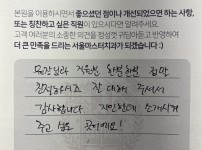 본원을 이용하시면서 좋으셨던 점이나 개선되었으면 하는 사항,
또는 칭찬하고 싶은 직원이 있으시다면 알려주세요.
고객 여러분의 소중한 의견을 정성껏 귀담아듣고 반영하여
더 큰 만족을 드리는 서울마스터치과가 되겠습니다:)
원장님과 직원분 한분한분 정말
친절하시고 잘 대해 주셔서
감사합니다 지인한테 소개시켜
주고 싶은 곳이에요!